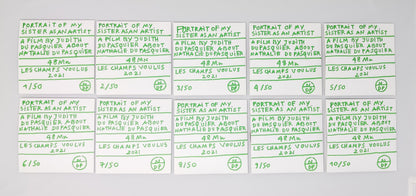 PORTRAIT OF MY
SISTER AS AN ARTIST
A FILM BY JUDITH
DU PASQUIER ABOUT
NATHALIE DU PASQUIER
48 Mn
LES CHAMPS VOULUS
2021
1/50
PORTRAIT OF MY
SISTER AS AN ARTIST
A FILM BY JUDITH
DU PASQUIER ABOUT
NATHALIE DU PASQUIER
48 Mn
LES CHAMPS VOULUS
2021
2/50
PORTRAIT OF MY
SISTER AS AN ARTIST
A FILM BY JUDITH
DU PASQUIER ABOUT
NATHALIE DU PASQUIER
48 Mn
LES CHAMPS VOULUS
2021
3/50
PORTRAIT OF MY
SISTER AS AN ARTIST
A FILM BY JUDITH
DU PASQUIER ABOUT
NATHALIE DU PASQUIER
48 Mn
LES CHAMPS VOULUS
2021
4/50
PORTRAIT OF MY
SISTER AS AN ARTIST
A FILM BY JUDITH
DU PASQUIER ABOUT
NATHALIE DU PASQUIER
48 Mn
LES CHAMPS VOULUS
2021
5/50
PORTRAIT OF MY
SISTER AS AN ARTIST
A FILM BY JUDITH
DU PASQUIER ABOUT
NATHALIE DU PASQUIER
48 Mn
LES CHAMPS VOULUS
2021
6/50
PORTRAIT OF MY
SISTER AS AN ARTIST
A FILM BY JUDITH
DU PASQUIER ABOUT
NATHALIE DU PASQUIER
48 Mn
LES CHAMPS VOULUS
2021
7/50
PORTRAIT OF MY
SISTER AS AN ARTIST
A FILM BY JUDITH
DU PASQUIER ABOUT
NATHALIE DU PASQUIER
48 Mn
LES CHAMPS VOULUS
2021
8/50
PORTRAIT OF MY
SISTER AS AN ARTIST
A FILM BY JUDITH
DU PASQUIER ABOUT
NATHALIE DU PASQUIER
48 Mn
LES CHAMPS VOULUS
2021
9/50
PORTRAIT OF MY
SISTER AS AN ARTIST
A FILM BY JUDITH
DU PASQUIER ABOUT
NATHALIE DU PASQUIER
48 Mn
LES CHAMPS VOULUS
2021
10/50